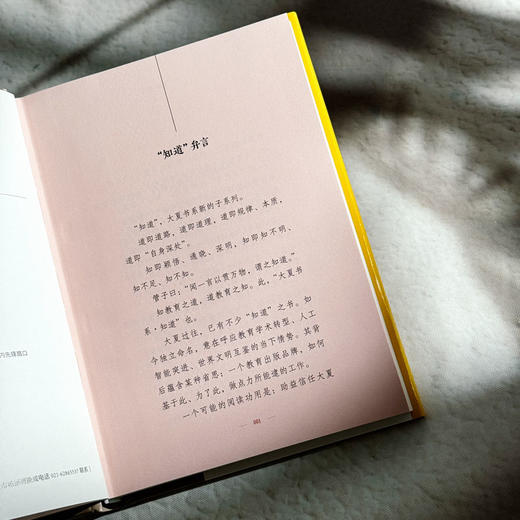 “知道”弁言
“知道”，大夏书系新的子系列。
道即道路，道即道理，道即规律、本质，
道即“自身深处”。
知即颖悟、通晓、深明，知即知不明、
知不足、知不知。
管子曰：“闻一言以贯万物，谓之知道。”
知教育之道，道教育之知。此，“大夏书
系，知道”也。
大夏过往，已有不少“知道”之书。如
今独立命名，意在呼应教育学术转型、人工
智能突进、世界文明互鉴的当下情势。其背
后蕴含某种省思：一个教育出版品牌，如何
基于此、为了此，做点力所能逮的工作。
一个可能的阅读功用是：助益信任大夏
001
内先锋路口
换或电话 021-62865537 联系）